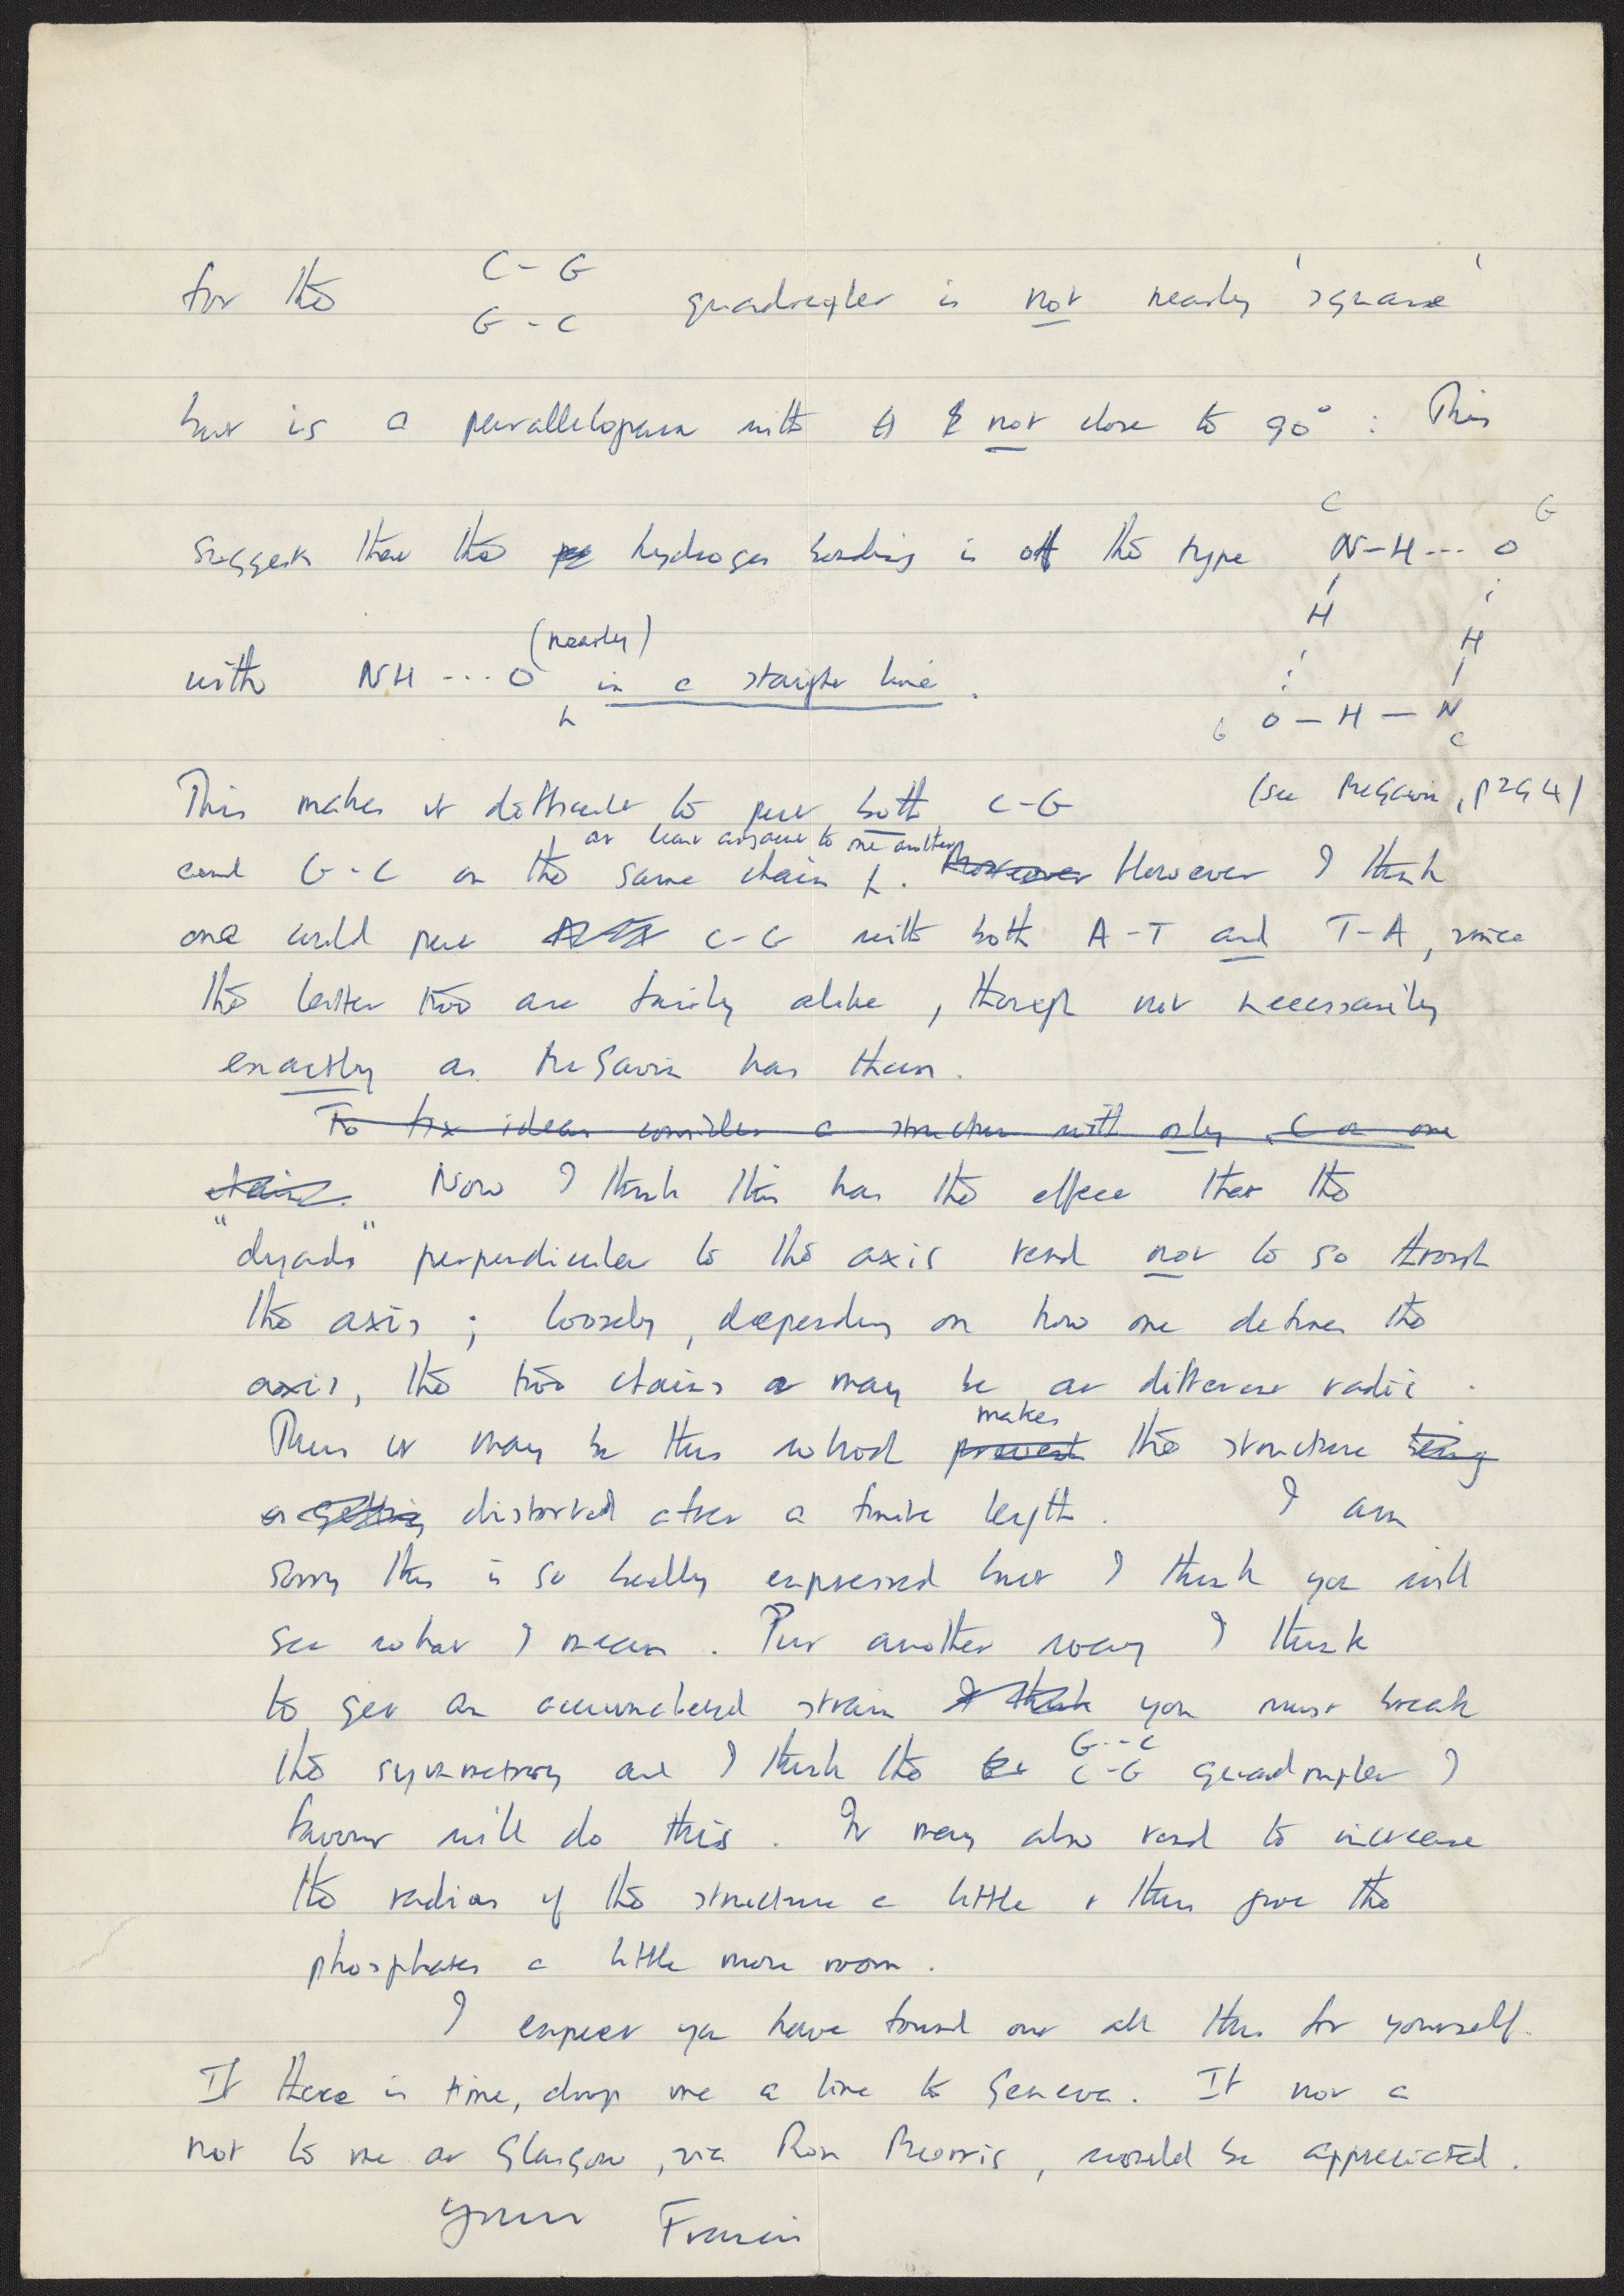 C - G
for the quadruplex is not nearly 'square'
G - C
but is a parallelogram with θ not close to 90° : This
C G
suggests that the hydrogen bonding is of the type N-H--- O
H
(nearly) H
with NH ---- O in a straight line.
G O — H — N
C
This makes it difficult to put both C-G (see McGavin, p294)
at least adjacent to one another
and G-C on the same chain. Moreover However I think
one could put C-G with both A-T and T-A, since
the latter two are fairly alike, though not necessarily
exactly as McGavin has them.
To fix ideas consider a structure with only C on one
chain. Now I think this has the effect that the
"dyads" perpendicular to the axis tend not to go through
the axis ; loosely, depending on how one defines the
axis, the two chains may be at different radii.
makes
Thus it may be this which prevents the structure being
or getting distorted after a finite length. I am
sorry this is so badly expressed but I think you will
see what I mean. Put another way I think
to get an accumulated strain I think you must break
G--C
the symmetry and I think the C-G quadruplex I
favour will do this. It may also tend to increase
the radius of the structure a little & thus give the
phosphates a little more room.
I expect you have found out all this for yourself.
If there is time, drop me a line to Geneva. If not a
not to me at Glasgow, via Ron Morris, would be appreciated.
Yours Francis